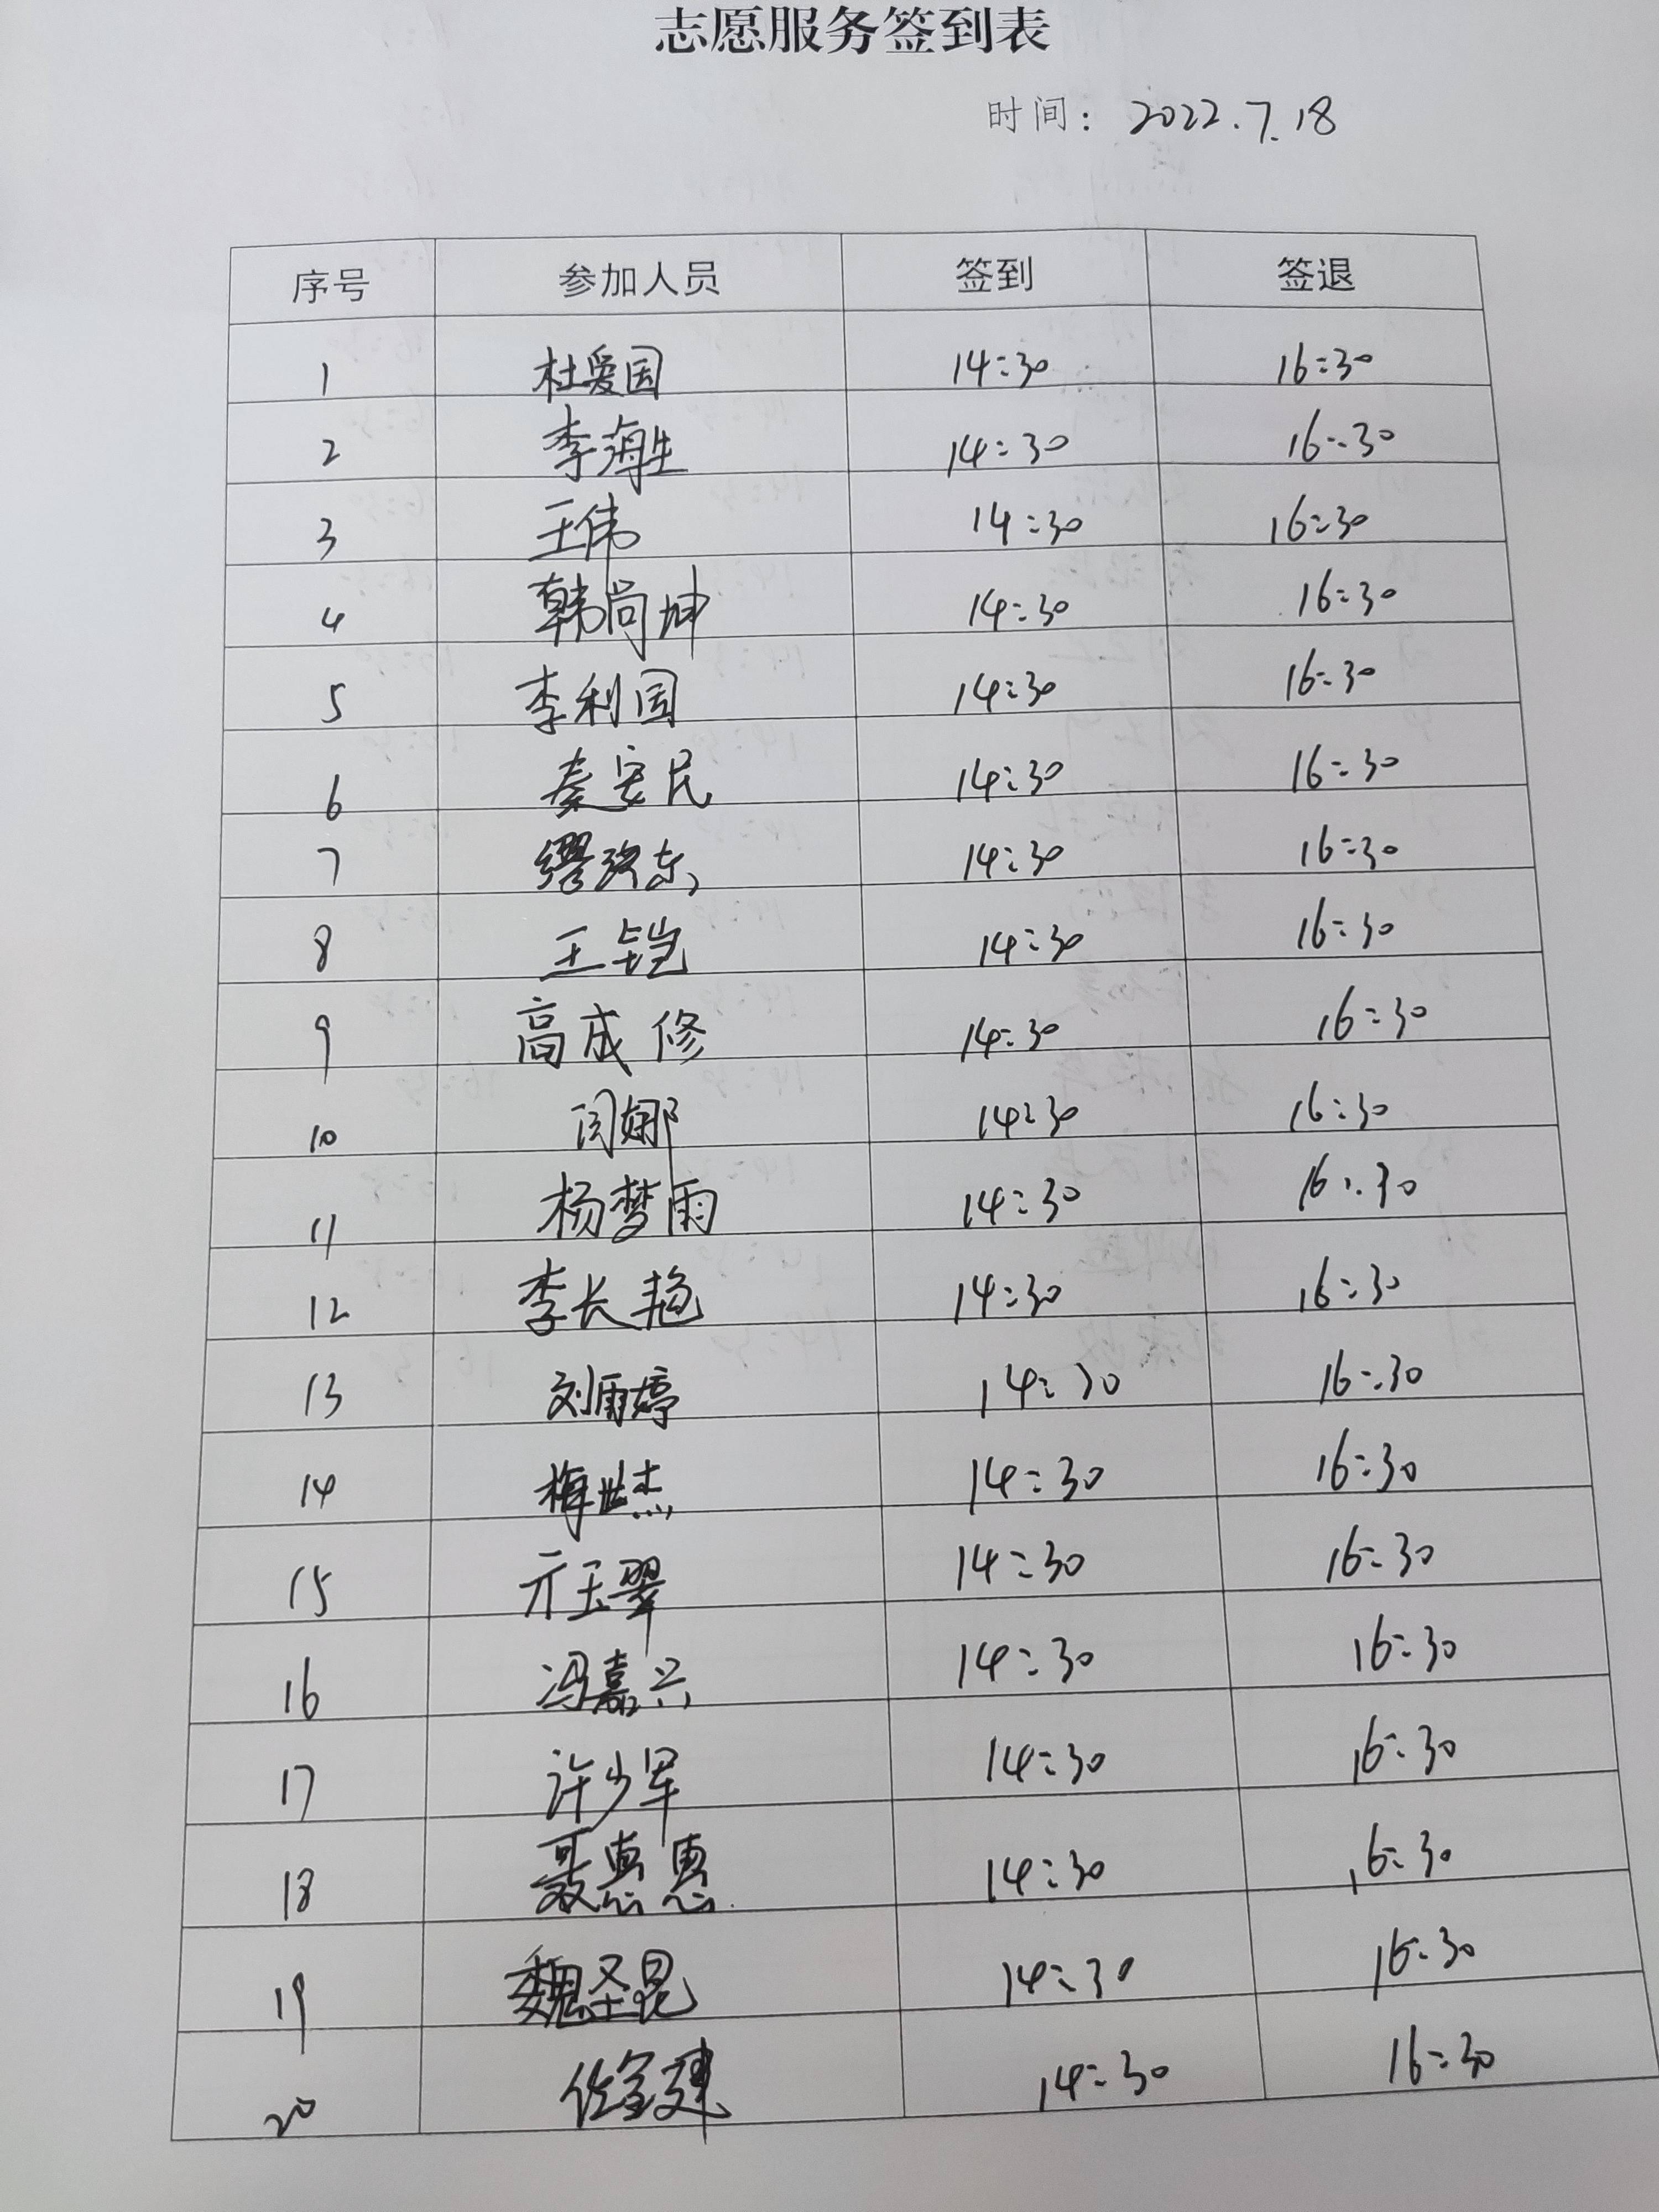 志愿服务签到表
时间: 2022.7.18
序号 参加人员 签到 签退
1 杜爱国 14:30 16:30
2 李海生 14:30 16:30
3 王伟 14:30 16:30
4 韩尚坤 14:30 16:30
5 李利国 14:30 16:30
6 秦安民 14:30 16:30
7 14:30 16:30
8 王铠 14:30 16:30
9 高成修 14:30 16:30
10 闫娜 14:30 16:30
11 杨梦雨 14:30 16:30
12 李长艳 14:30 16:30
13 刘雨婷 14:30 16:30
14 梅世杰 14:30 16:30
15 亓玉翠 14:30 16:30
16 冯嘉兴 14:30 16:30
17 许少军 14:30 16:30
18 聂惠惠 14:30 16:30
19 魏圣昆 14:30 16:30
20 14:30 16:30